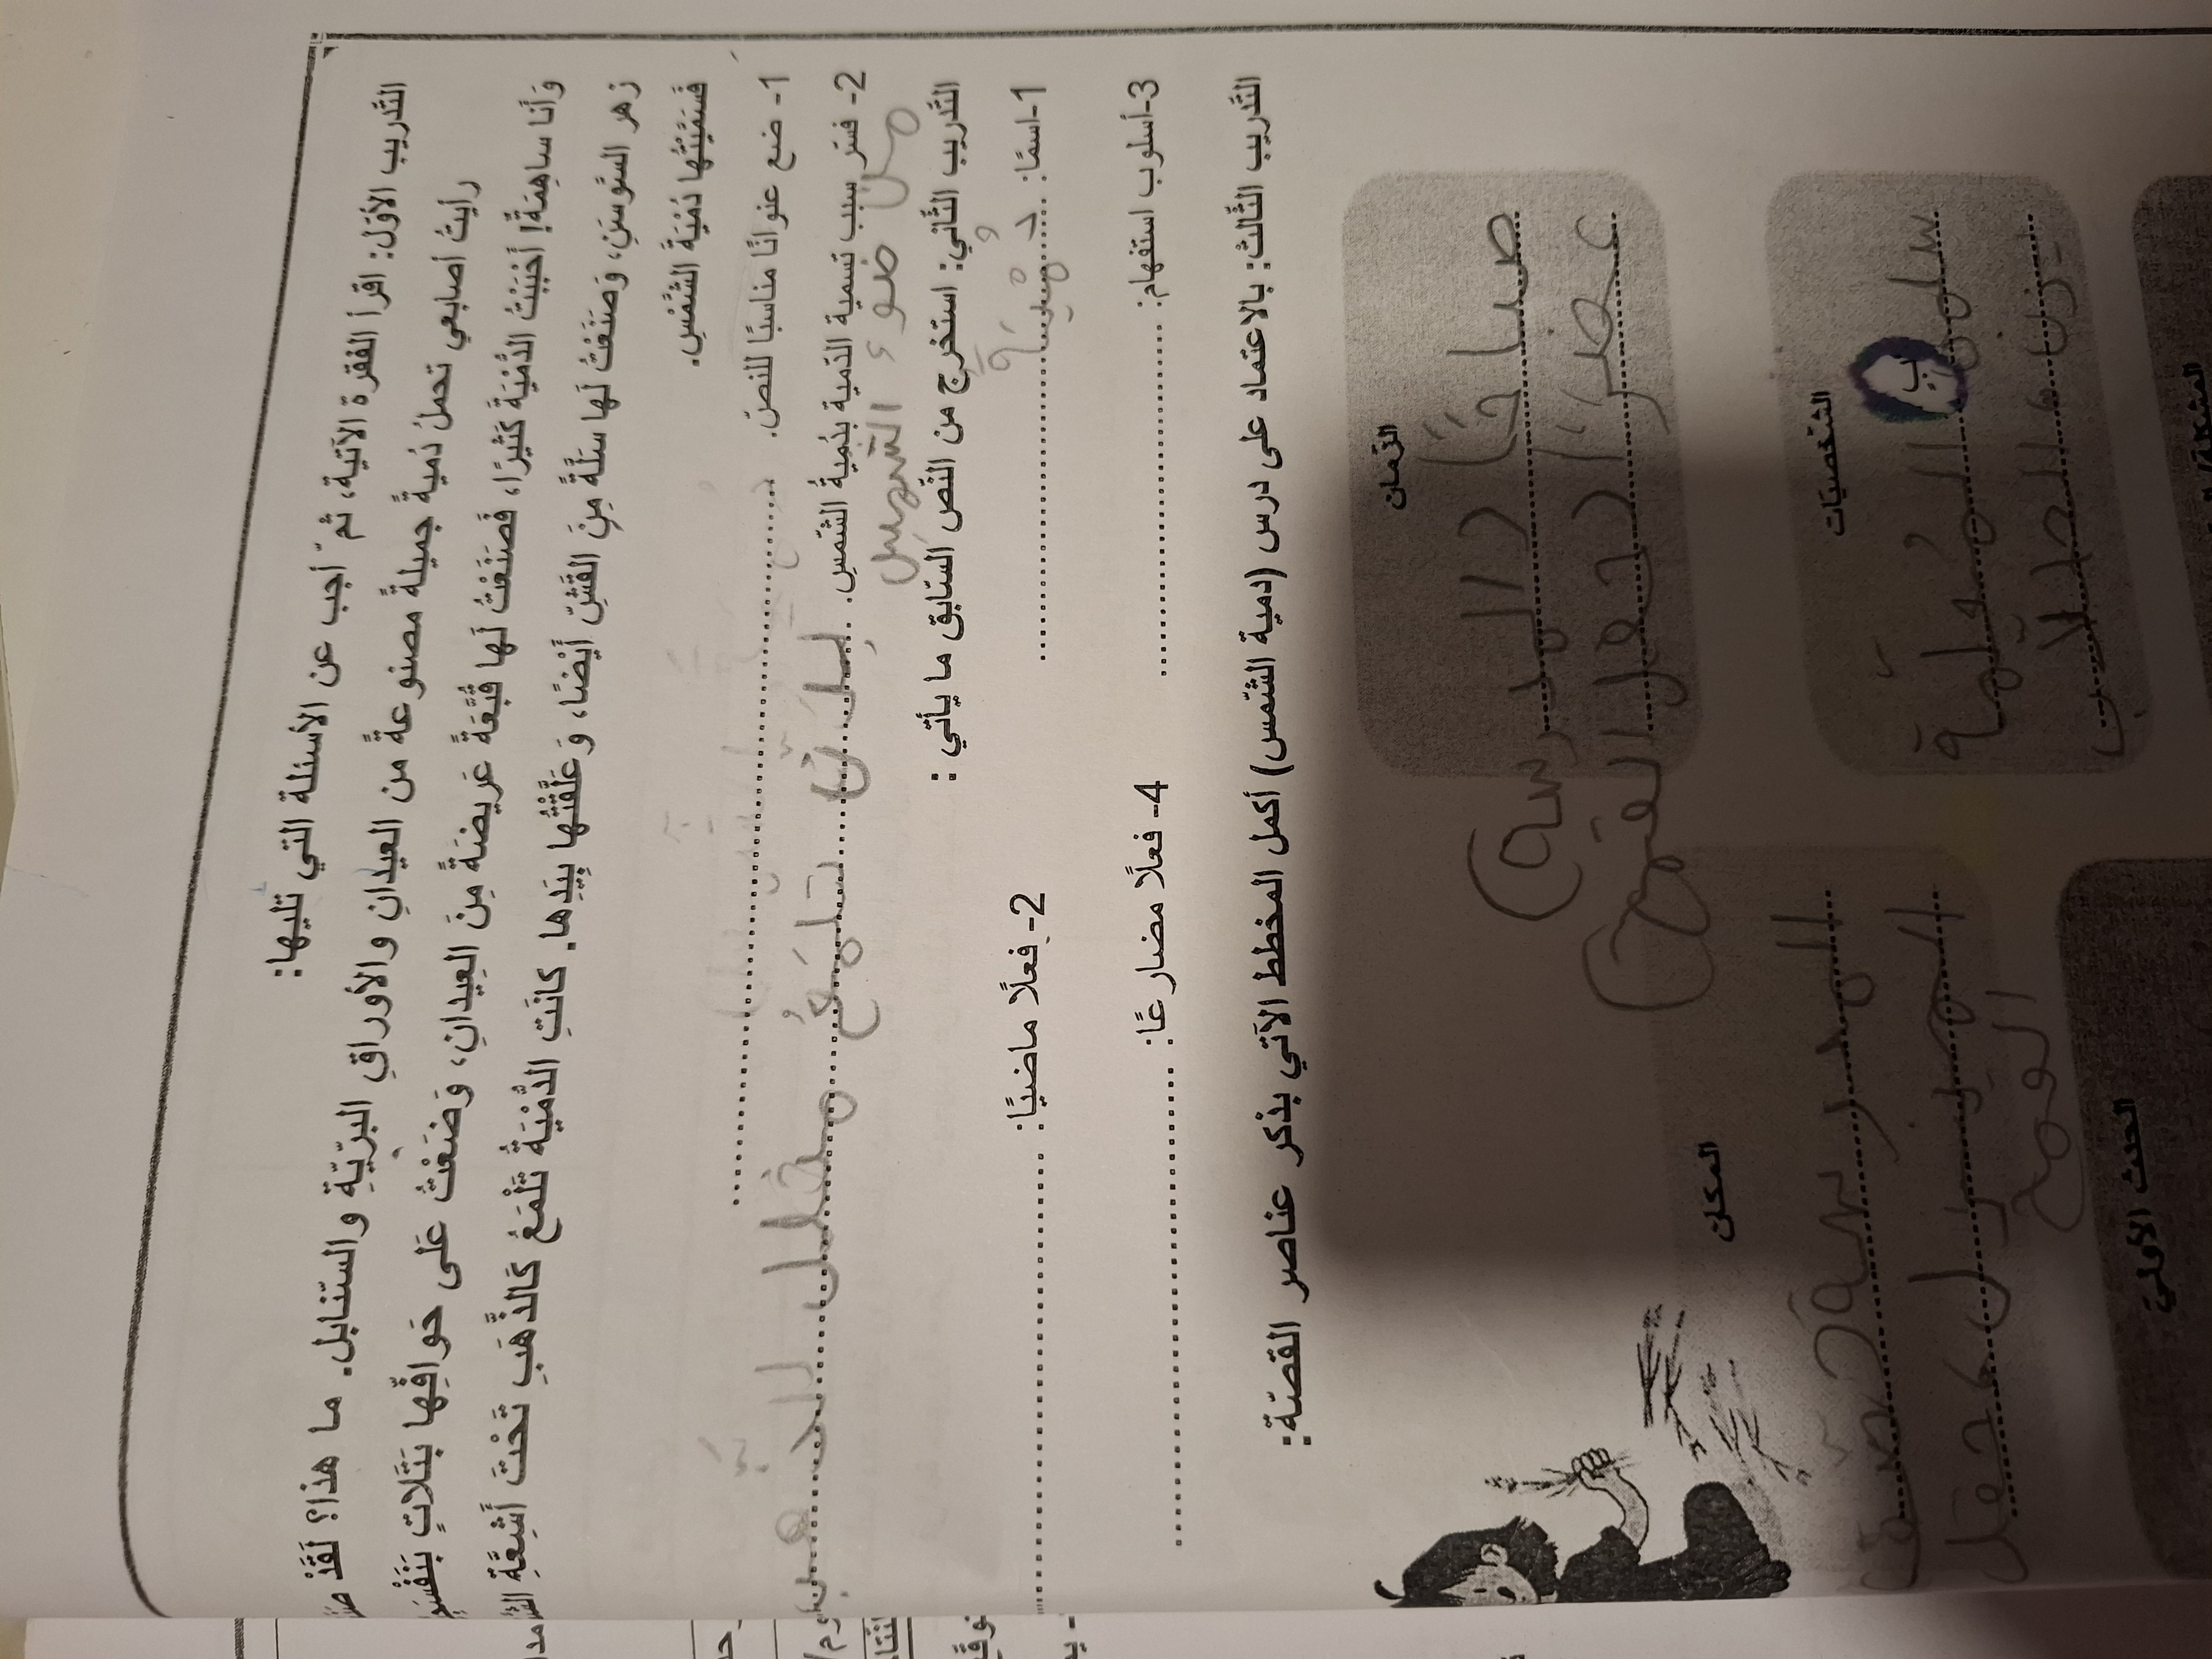 التَّدريب الأوّل: اقرأ الفقرة الآتية، ثمّ أجب عن الأسئلة التي تليها:
رأيتُ أصابعي تحملُ دُميةً جميلةً مصنوعةً من العيدانِ والأوراقِ البرّيّةِ والسّنابل. ما هذا؟ لَقَدْ
وَأَنا ساهِمَةٌ! أَحْبَبْتُ الدُّمْيَةَ كَثيرًا، فَصَنَعْتُ لَها قُبَّعَةً عَريضَةً مِنَ العِيدانِ، وَضَعْتُ عَلى حَوافِّها بَتَلاتٍ
زهر السَّوسَنِ، وَصَنَعْتُ لَها سَلَّةً مِنَ القَشِّ أَيْضًا، وَعَلَّقْتُها بِيَدِها. كانَتِ الدُّمْيَةُ تَلْمَعُ كَالذَّهَبِ تَحْتَ أَشِعَّةِ
فَسَمَّيْتُها دُمْيَةَ الشَّمْسِ.
1- ضع عنوانًا مناسبًا للنصّ.
2- فسّر سبب تسمية الدّمية بدُميةُ الشّمسِ.
لأنّ تلمَعُ مثل الذّهب
من ضوء الشمسِ
التَّدريب الثَّاني: استخرج من النّص السّابق ما يأتي :
1-اسمًا: دُمْيَة
2- فعلًا ماضيًا:
3-أسلوب استفهام:
4- فعلًا مضارعًا:
التَّدريب الثَّالث: بالاعتماد على درس (دمية الشّمس) أكمل المخطط الآتي بذكر عناصر القصّة:
الزّمان
صباحًا (المدرسة)
عصرًا (حقل القمح)
المكان
المدرسة
المنزل حقل
القمح
الشّخصيّات
سلمى المُعلّمة
الطلّاب
الحدث الأوّليّ